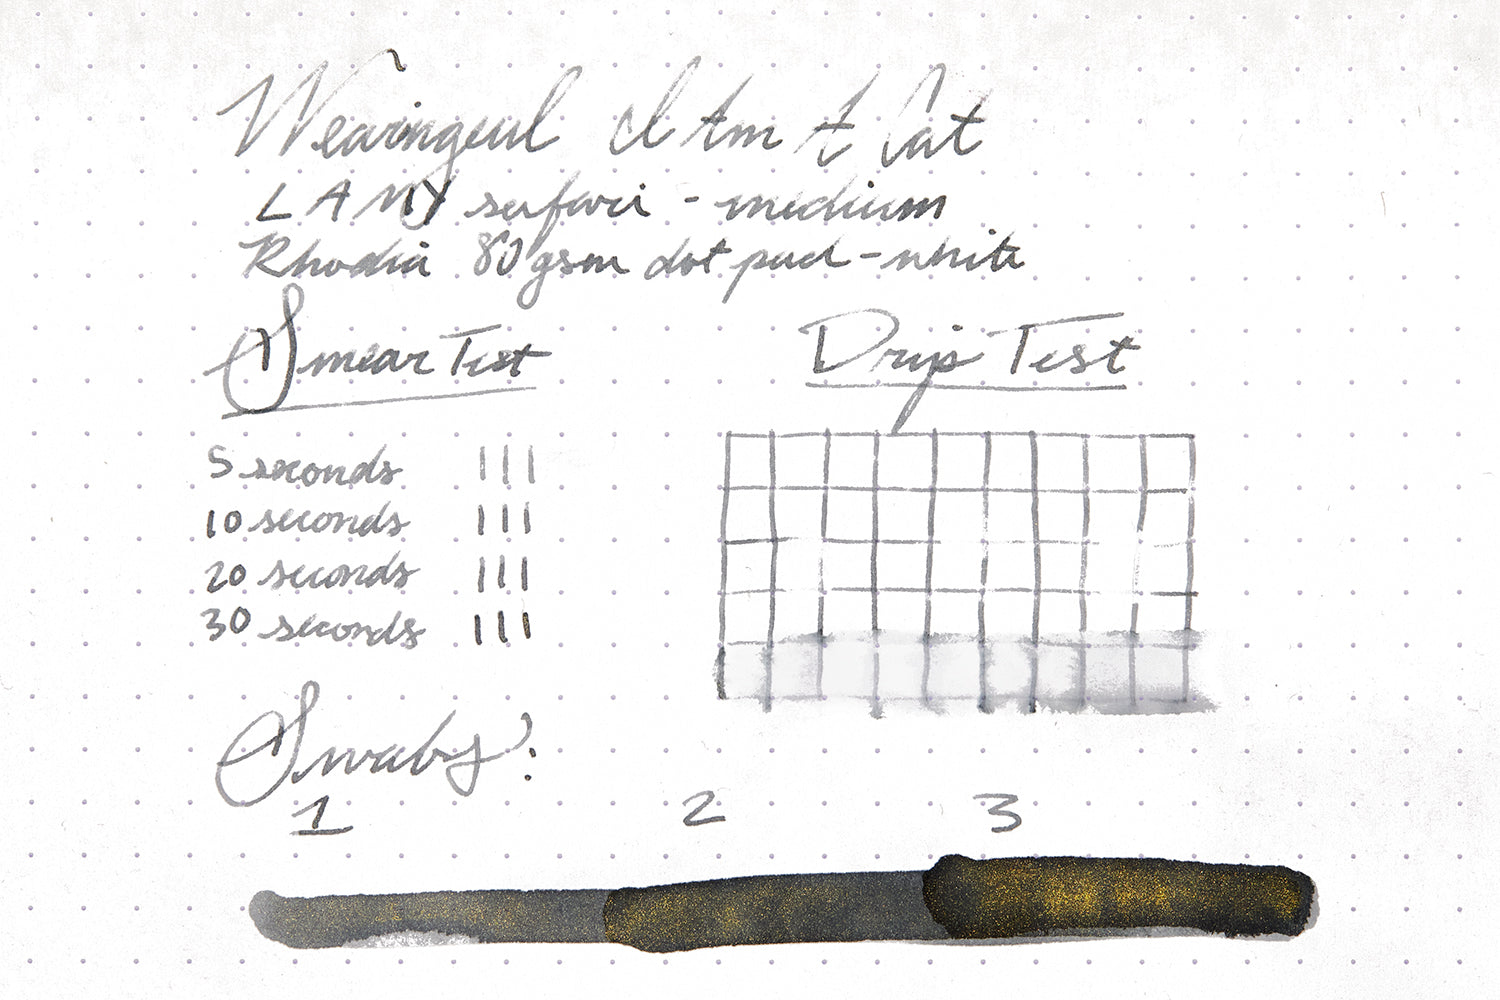 Wearingeul I Am A Cat
LAMY safari - medium
Rhodia 80gsm dot pad - white
Smear Test
Drip Test
5 seconds
10 seconds
20 seconds
30 seconds
Swabs:
1 2 3